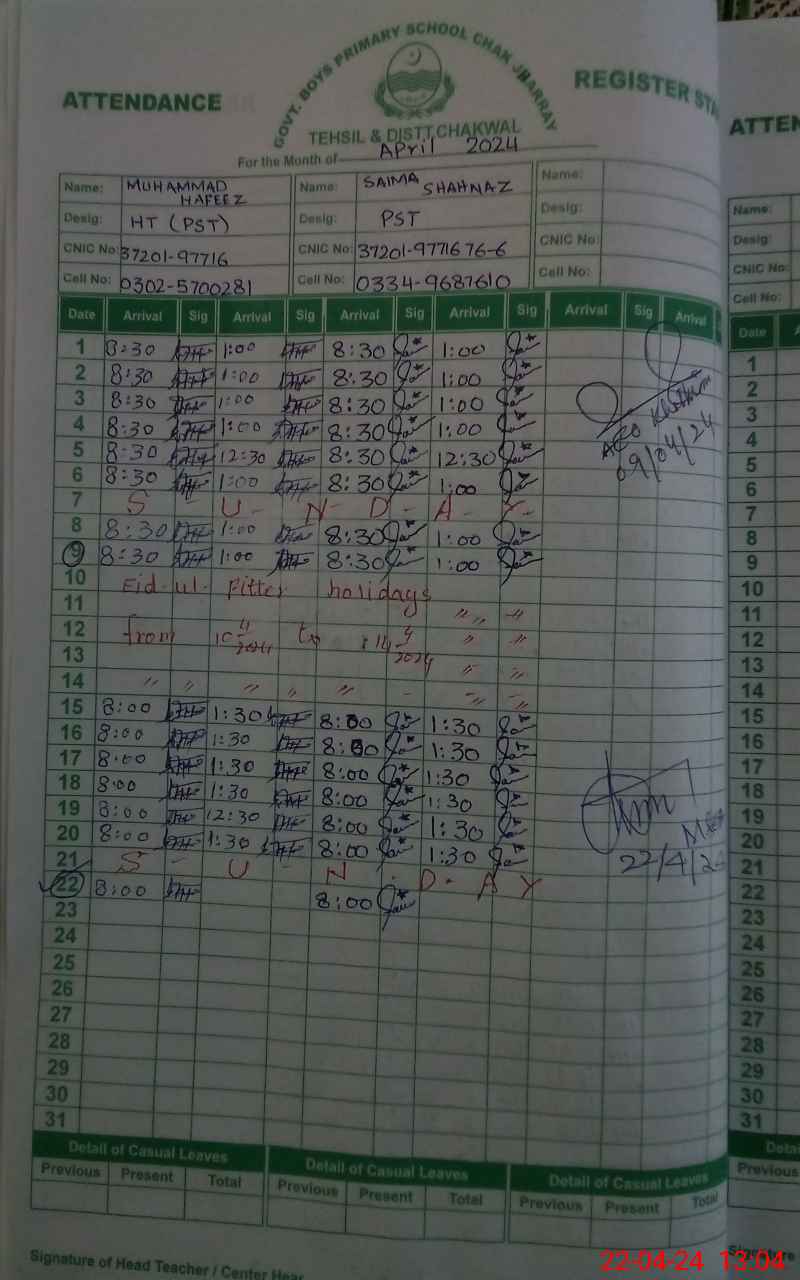 GOVT. BOYS PRIMARY SCHOOL CHAK JHARRAY
ATTENDANCE REGISTER STA
TEHSIL & DISTT.CHAKWAL
For the Month of April 2024
Name: MUHAMMAD HAFEEZ Name: SAIMA SHAHNAZ Name:
Desig: HT (PST) Desig: PST Desig:
CNIC No: 37201-97716 CNIC No: 37201-9771676-6 CNIC No:
Cell No: 0302-5700281 Cell No: 0334-9687610 Cell No:
Date Arrival Sig Arrival Sig Arrival Sig Arrival Sig Arrival Sig Arrival
1 8:30 1:00 8:30 1:00
2 8:30 1:00 8:30 1:00
3 8:30 1:00 8:30 1:00
4 8:30 1:00 8:30 1:00
5 8:30 12:30 8:30 12:30
6 8:30 1:00 8:30 1:00
7 S - U - N - D - A - Y -
8 8:30 1:00 8:30 1:00
9 8:30 1:00 8:30 1:00
10 Eid-ul-Fitter holidays
11 " " "
12 from 10 4/2024 to 14 4/2024 " "
13 " "
14 " " " " " - " "
15 8:00 1:30 8:00 1:30
16 8:00 1:30 8:00 1:30
17 8:00 1:30 8:00 1:30
18 8:00 1:30 8:00 1:30
19 8:00 12:30 8:00 1:30
20 8:00 1:30 8:00 1:30
21 S - U - N - D - A Y
22 8:00 8:00
23
24
25
26
27
28
29
30
31
09/04/24
22/4/24
Detail of Casual Leaves Detail of Casual Leaves Detail of Casual Leaves
Previous Present Total Previous Present Total Previous Present Total
Signature of Head Teacher / Center Hea
ATTEN
Name:
Desig:
CNIC No:
Cell No:
Date
1
2
3
4
5
6
7
8
9
10
11
12
13
14
15
16
17
18
19
20
21
22
23
24
25
26
27
28
29
30
31
Detai
Previous
Signature
22-04-24 13:04